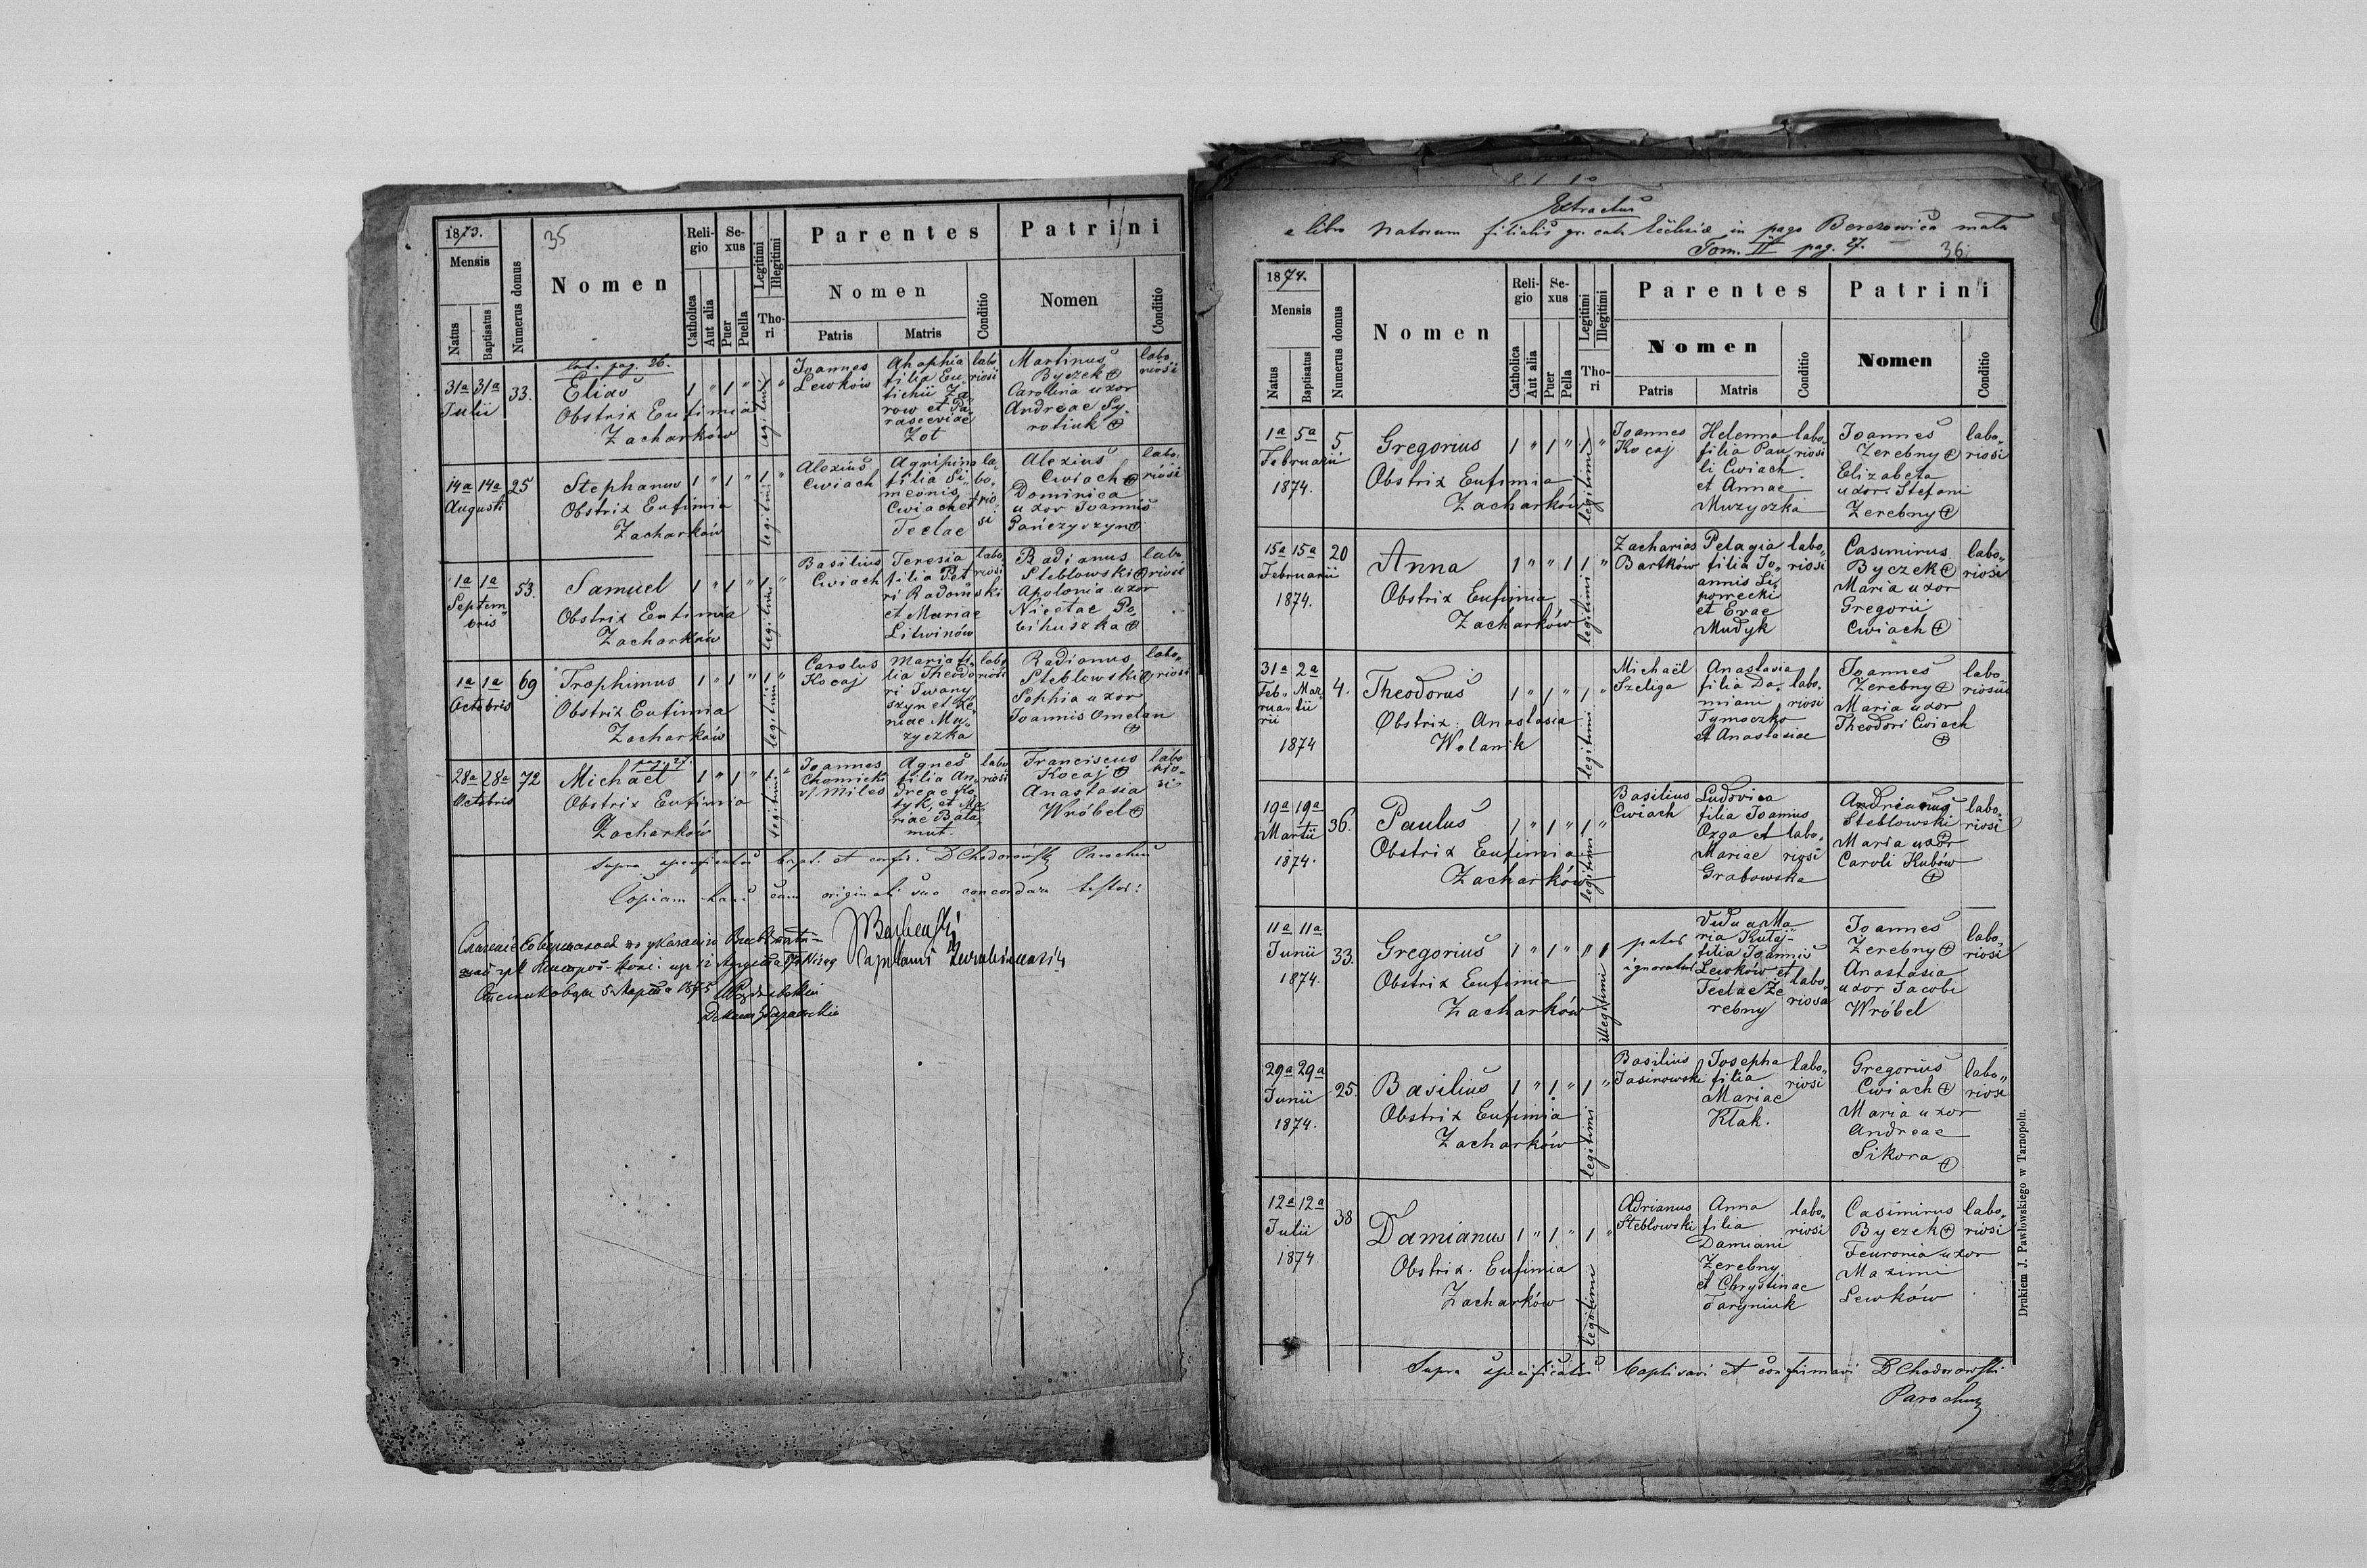 1873.
35
Mensis
Natus
Baptisatus
Numerus domus
Nomen
Religio
Catholica
Aut alia
Sexus
Puer
Puella
Legitimi
Illegitimi
Thori
Parentes
Nomen
Patris
Matris
Conditio
Patrini
Nomen
Conditio
pag. 26.
31a 31a
Julii
33.
Elias
Obstrix Eufimia
Zacharków
1 " 1 " 1 "
legitimi
Joannes
Lewków
Ahaphia
filia Eu
tichii Za
row et Pa
rasceviae
Zot
labo
riosi
Martinus
Byczek
Carolina uxor
Andreae Sy
rotiuk
labo
riosi
14a 14a
Augusti
25
Stephanus
Obstrix Eufimia
Zacharków
1 " 1 " 1 "
legitimi
Alexius
Cwiach
Agripina
filia Si
meonis
Cwiach et
Teclae
la
bo
rio
si
Alexius
Cwiach
Dominica
uxor Joannis
Pańczyszyn
labo
riosi
1a 1a
Septem
bris
53.
Samuel
Obstrix Eufimia
Zacharków
1 " 1 " 1 "
legitimi
Basilius
Cwiach
Teresia
filia Pet
ri Radomski
et Mariae
Litwinów
labo
riosi
Radianus
Steblowski
Apolonia uxor
Nicetae Po
bihuszka
labo
riosi
1a 1a
Octobris
69
Trophimus
Obstrix Eufimia
Zacharków
1 " 1 " 1 "
legitimi
Carolus
Kocaj
Maria fi
lia Theodo
ri Iwany
szyn et Xe
niae Mu
zyczka
labo
riosi
Radianus
Steblowski
Sophia uxor
Joannis Omelan
labo
riosi
28a 28a
Octobris
72
pag. 27.
Michael
Obstrix Eufimia
Zacharków
1 " 1 " 1 "
legitimi
Joannes
Chomicki
miles
Agnes
filia An
dreae Ko
tyk, et Ma
riae Bała
mut.
labo
riosi
Franciscus
Kocaj
Anastasia
Wróbel
labo
rio
si
Supra specificatos bapt. et confir. D Chodorowski Parochus
Copiam hanc cum originali suo concordare testor:
Extractus
e libro Natorum filialis gr. cath. Ecclesiae in pago Berezowica mała
Tom. II pag. 27.
36
1874.
Mensis
Natus
Baptisatus
Numerus domus
Nomen
Religio
Catholica
Aut alia
Sexus
Puer
Pella
Legitimi
Illegitimi
Thori
Parentes
Nomen
Patris
Matris
Conditio
Patrini
Nomen
Conditio
1a 5a
Februarii
1874.
5
Gregorius
Obstrix Eufimia
Zacharków
1 " 1 " 1 "
legitimi
Joannes
Kocaj
Helenna
filia Pau
li Cwiach
et Annae
Muzyczka
labo
riosi
Joannes
Zerebny
Elizabeta
uxor Stefani
Zerebny
labo
riosi
15a 15a
Februarii
1874.
20
Anna
Obstrix Eufimia
Zacharków
1 " " 1 1 "
legitimi
Zacharias
Bartków
Pelagia
filia Jo
annis Li
powecki
et Evae
Mudyk
labo
riosi
Casimirus
Byczek
Maria uxor
Gregorii
Cwiach
labo
riosi
31a 2a
Feb Mar
rua tii
rii
1874
4.
Theodorus
Obstrix: Anastasia
Wolanik
1 " 1 " 1 "
legitimi
Michaël
Szeliga
Anastasia
filia Da
miani
Tymoczko
et Anastasiae
labo
riosi
Joannes
Zerebny
Maria uxor
Theodori Cwiach
labo
riosi
19a 19a
Martii
1874.
36.
Paulus
Obstrix Eufimia
Zacharków
1 " 1 " 1 "
legitimi
Basilius
Cwiach
Ludovica
filia Joannis
Ozga et
Mariae
Grabowska
labo
riosi
Andrianus
Steblowski
Maria uxor
Caroli Kubów
labo
riosi
11a 11a
Junii
1874.
33.
Gregorius
Obstrix Eufimia
Zacharków
1 " 1 " " 1
illegitimi
pater
ignoratus
Vidua Ma
ria Kutaj
filia Joannis
Lewków et
Teclae Ze
rebny
labo
riosa
Joannes
Zerebny
Anastasia
uxor Jacobi
Wróbel
labo
riosi
29a 29a
Junii
1874.
25.
Basilius
Obstrix Eufimia
Zacharków
1 " 1 " 1 "
legitimi
Basilius
Jasinowski
Josepha
filia
Mariae
Klak.
labo
riosi
Gregorius
Cwiach
Maria uxor
Andreae
Sikora
labo
riosi
12a 12a
Julii
1874.
38
Damianus
Obstrix. Eufimia
Zacharków
1 " 1 " 1 "
legitimi
Adrianus
Steblowski
Anna
filia
Damiani
Zerebny
et Chrystinae
Taryniuk
labo
riosi
Casimirus
Byczek
Feuronia uxor
Maximi
Lewków
labo
riosi
Supra specificatos baptisavi et confirmavi D Chodorowski
Parochus
Drukiem J. Pawłowskiego w Tarnopolu.